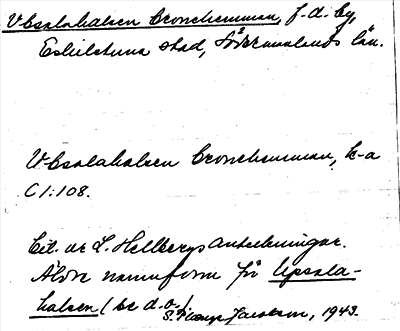 Vbsalahalsen Cronehemman, f.d. by,
Eskilstuna stad, Södermanlands län.
Vbsalahalsen Cronehemman, k-a
C1:108.
Cit. ur L. Hellbergs Anteckningar.
Äldre namnform för Upsala-
halsen (se d.o.).
S. Jacobson, 1943.